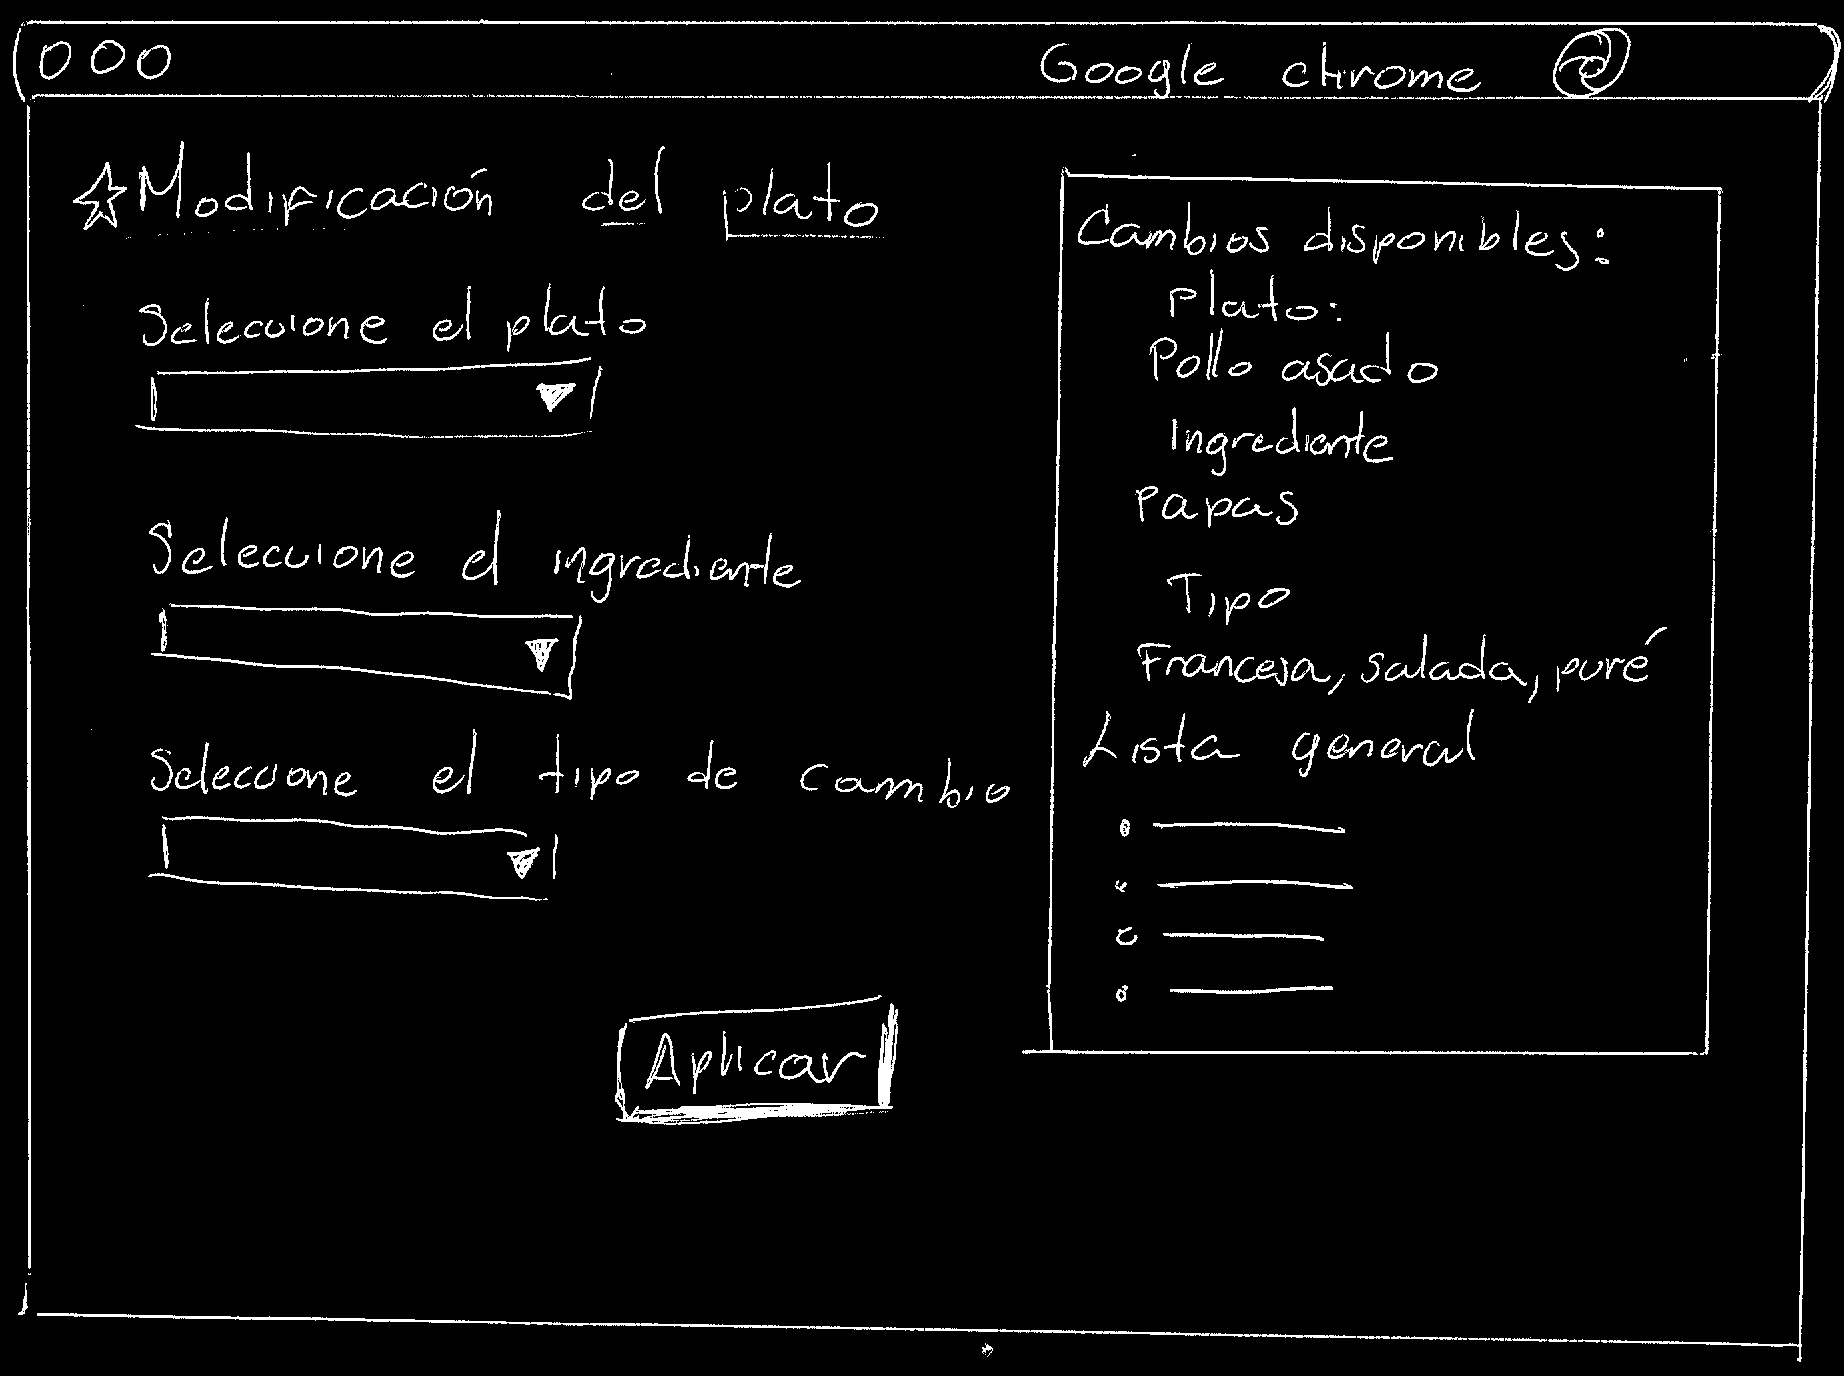 Google chrome
Modificación del plato
Seleccione el plato
Seleccione el ingrediente
Seleccione el tipo de cambio
Aplicar
Cambios disponibles:
Plato:
Pollo asado
Ingrediente
Papas
Tipo
Francesa, salada, puré
Lista general